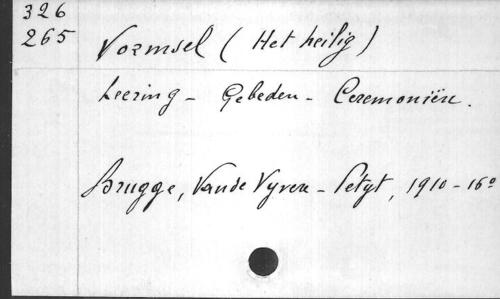 326
265
Vormsel (Het heilig)
Leering - Gebeden - Ceremoniën.
Brugge, Van de Vyvere - Petyt, 1910 - 16º